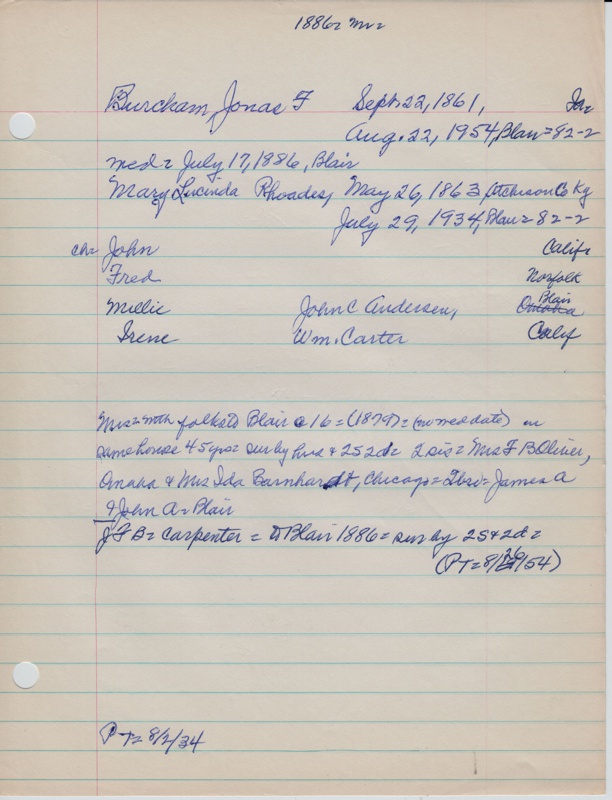 1886 = Mr =
Burcham, Jonas F Sept. 22, 1861, In =
Aug. 22, 1954, Blair = 82-2
med = July 17, 1886, Blair
Mary Lucinda Rhoades, May 26, 1863 Atchison Co Ky
July 29, 1934, Blair = 82-2
ch = John Calif
Fred Norfolk
Millie John C Andersen, Blair Omaha
Irene Wm. Carter Calif
Mrs = with folks to Blair @ 16 = (1879) = (no med date) in
same house 45 yrs = sur by hus & 2s 2d = 2 sis = Mrs F B Oliver,
Omaha & Mrs Ida Barnhardt, Chicago = 2 bro = James A
& John A = Blair
J F B = Carpenter = to Blair 1886 = sur by 2S & 2d =
(PT = 8/26/54)
PT = 8/2/34